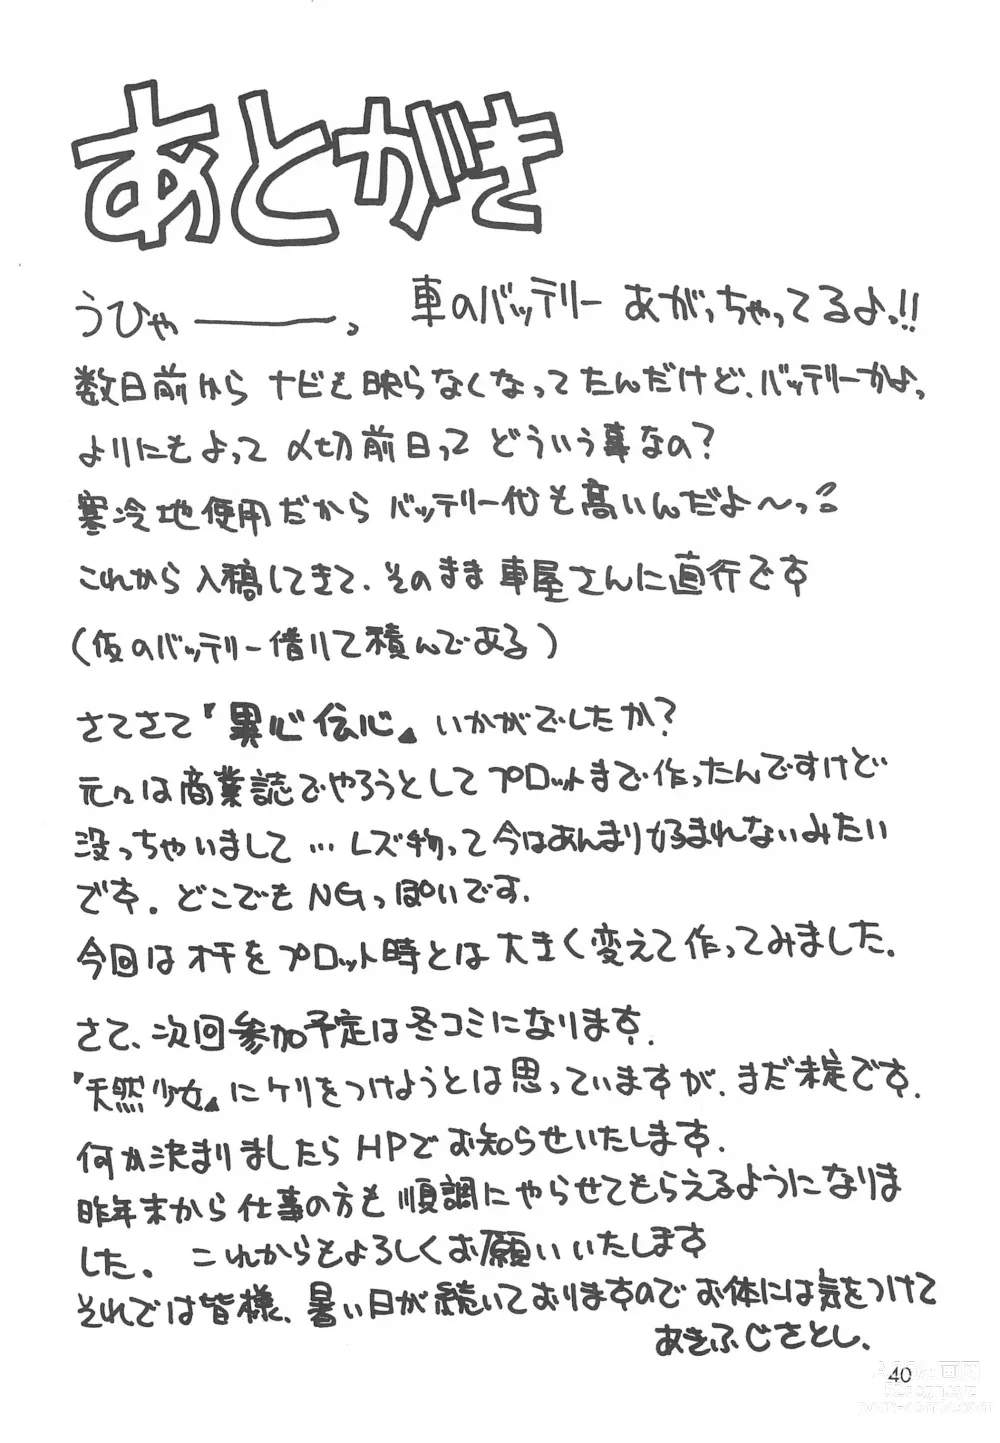 あとがき
うひゃーーっ 車のバッテリー あがっちゃってるよっ!!
数日前から ナビも映らなくなってたんだけど、バッテリーかよっ
よりにもよって 〆切前日って どういう事なの?
寒冷地使用だから バッテリー代も高いんだよ〜っ
これから入稿してきて、そのまま車屋さんに直行です
(仮のバッテリー借りて積んである)
さてさて『異心伝心』いかがでしたか?
元々は商業誌でやろうとしてプロットまで作ったんですけど
没っちゃいまして…レズ物って今はあんまり好まれないみたい
です。どこでもNGっぽいです。
今回はオチをプロット時とは大きく変えて作ってみました。
さて、次回参加予定は冬コミになります。
『天然少女』にケリをつけようとは思っていますが、まだ未定です。
何か決まりましたらHPでお知らせいたします。
昨年末から仕事の方も順調にやらせてもらえるようになりま
した。これからもよろしくお願いいたします
それでは皆様、暑い日が続いておりますのでお体には気をつけて
あきふじさとし、
40